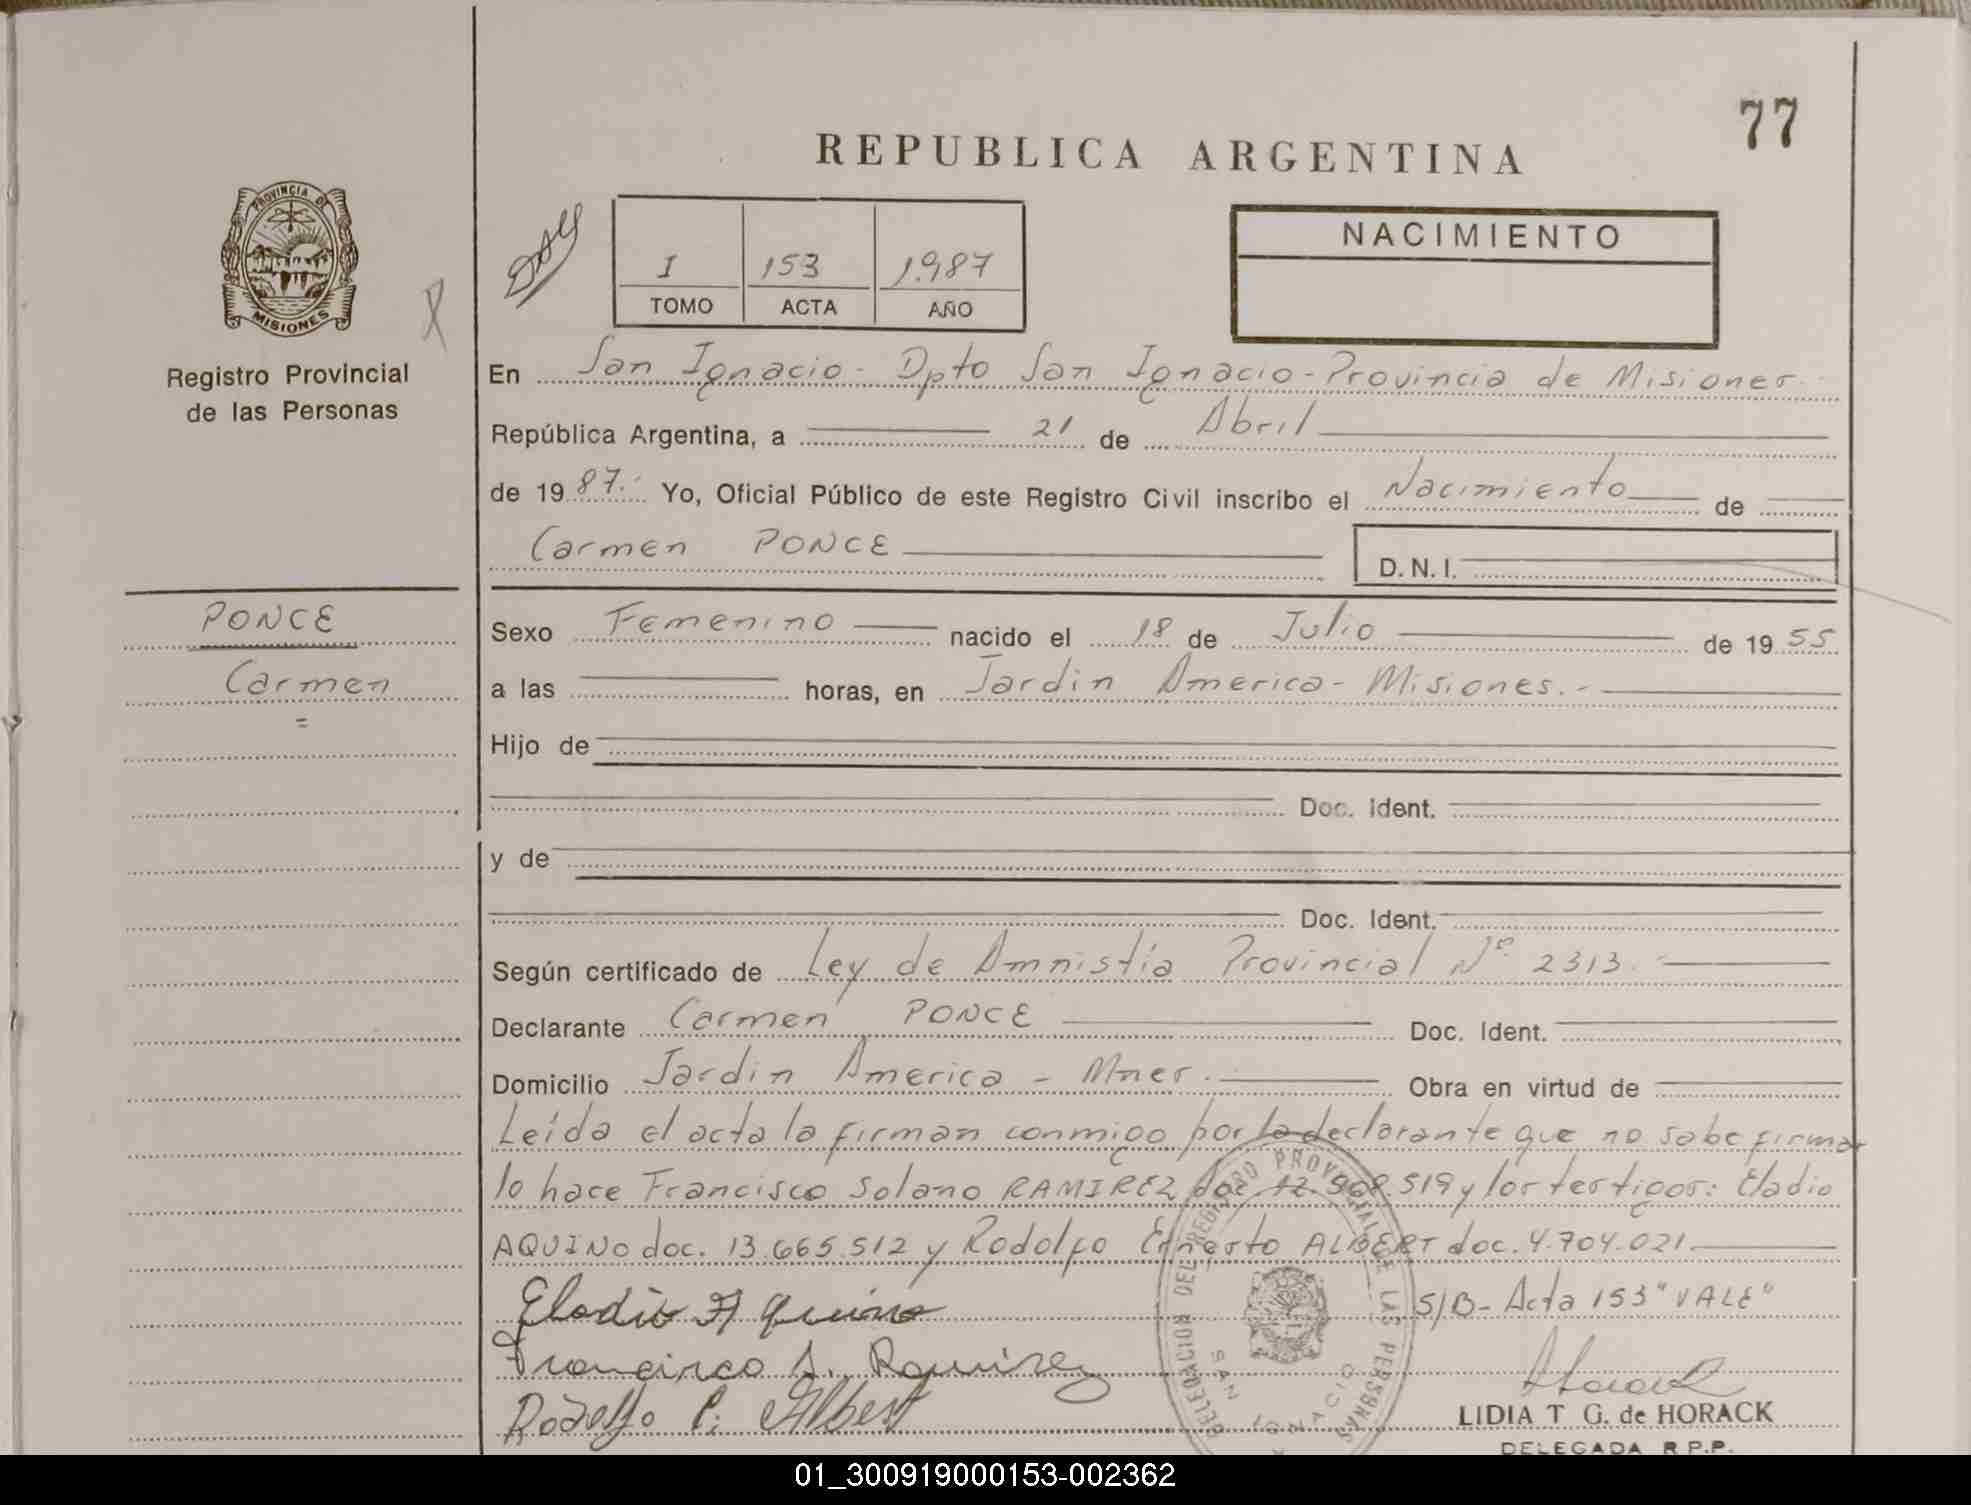 77
REPUBLICA ARGENTINA
PROVINCIA DE
MISIONES
Registro Provincial
de las Personas
I 153 1.987
TOMO ACTA AÑO
NACIMIENTO
En San Ignacio - Dpto San Ignacio - Provincia de Misiones.-
República Argentina, a 21 de Abril
de 1987.- Yo, Oficial Público de este Registro Civil inscribo el Nacimiento de
Carmen PONCE D.N.I.
PONCE
Carmen
=
Sexo Femenino nacido el 18 de Julio de 1955
a las horas, en Jardin America - Misiones.-
Hijo de
Doc. Ident.
y de
Doc. Ident.
Según certificado de Ley de Amnistía Provincial Nº 2313.-
Declarante Carmen PONCE Doc. Ident.
Domicilio Jardin America - Mnes. Obra en virtud de
Leída el acta la firman conmigo por la declarante que no sabe firmar
lo hace Francisco Solano RAMIREZ doc. 12.968.519 y los testigos: Eladio
AQUINO doc. 13.665.512 y Rodolfo Ernesto ALBERT doc. 4.704.021.
Eladio Aquino
S/B- Acta 153 "VALE"
Francisco S. Ramirez
Rodolfo E. Albert
DELEGACION DEL REGISTRO PROVINCIAL DE LAS PERSONAS
SAN IGNACIO
LIDIA T. G. de HORACK
DELEGADA R.P.P.
01_300919000153-002362